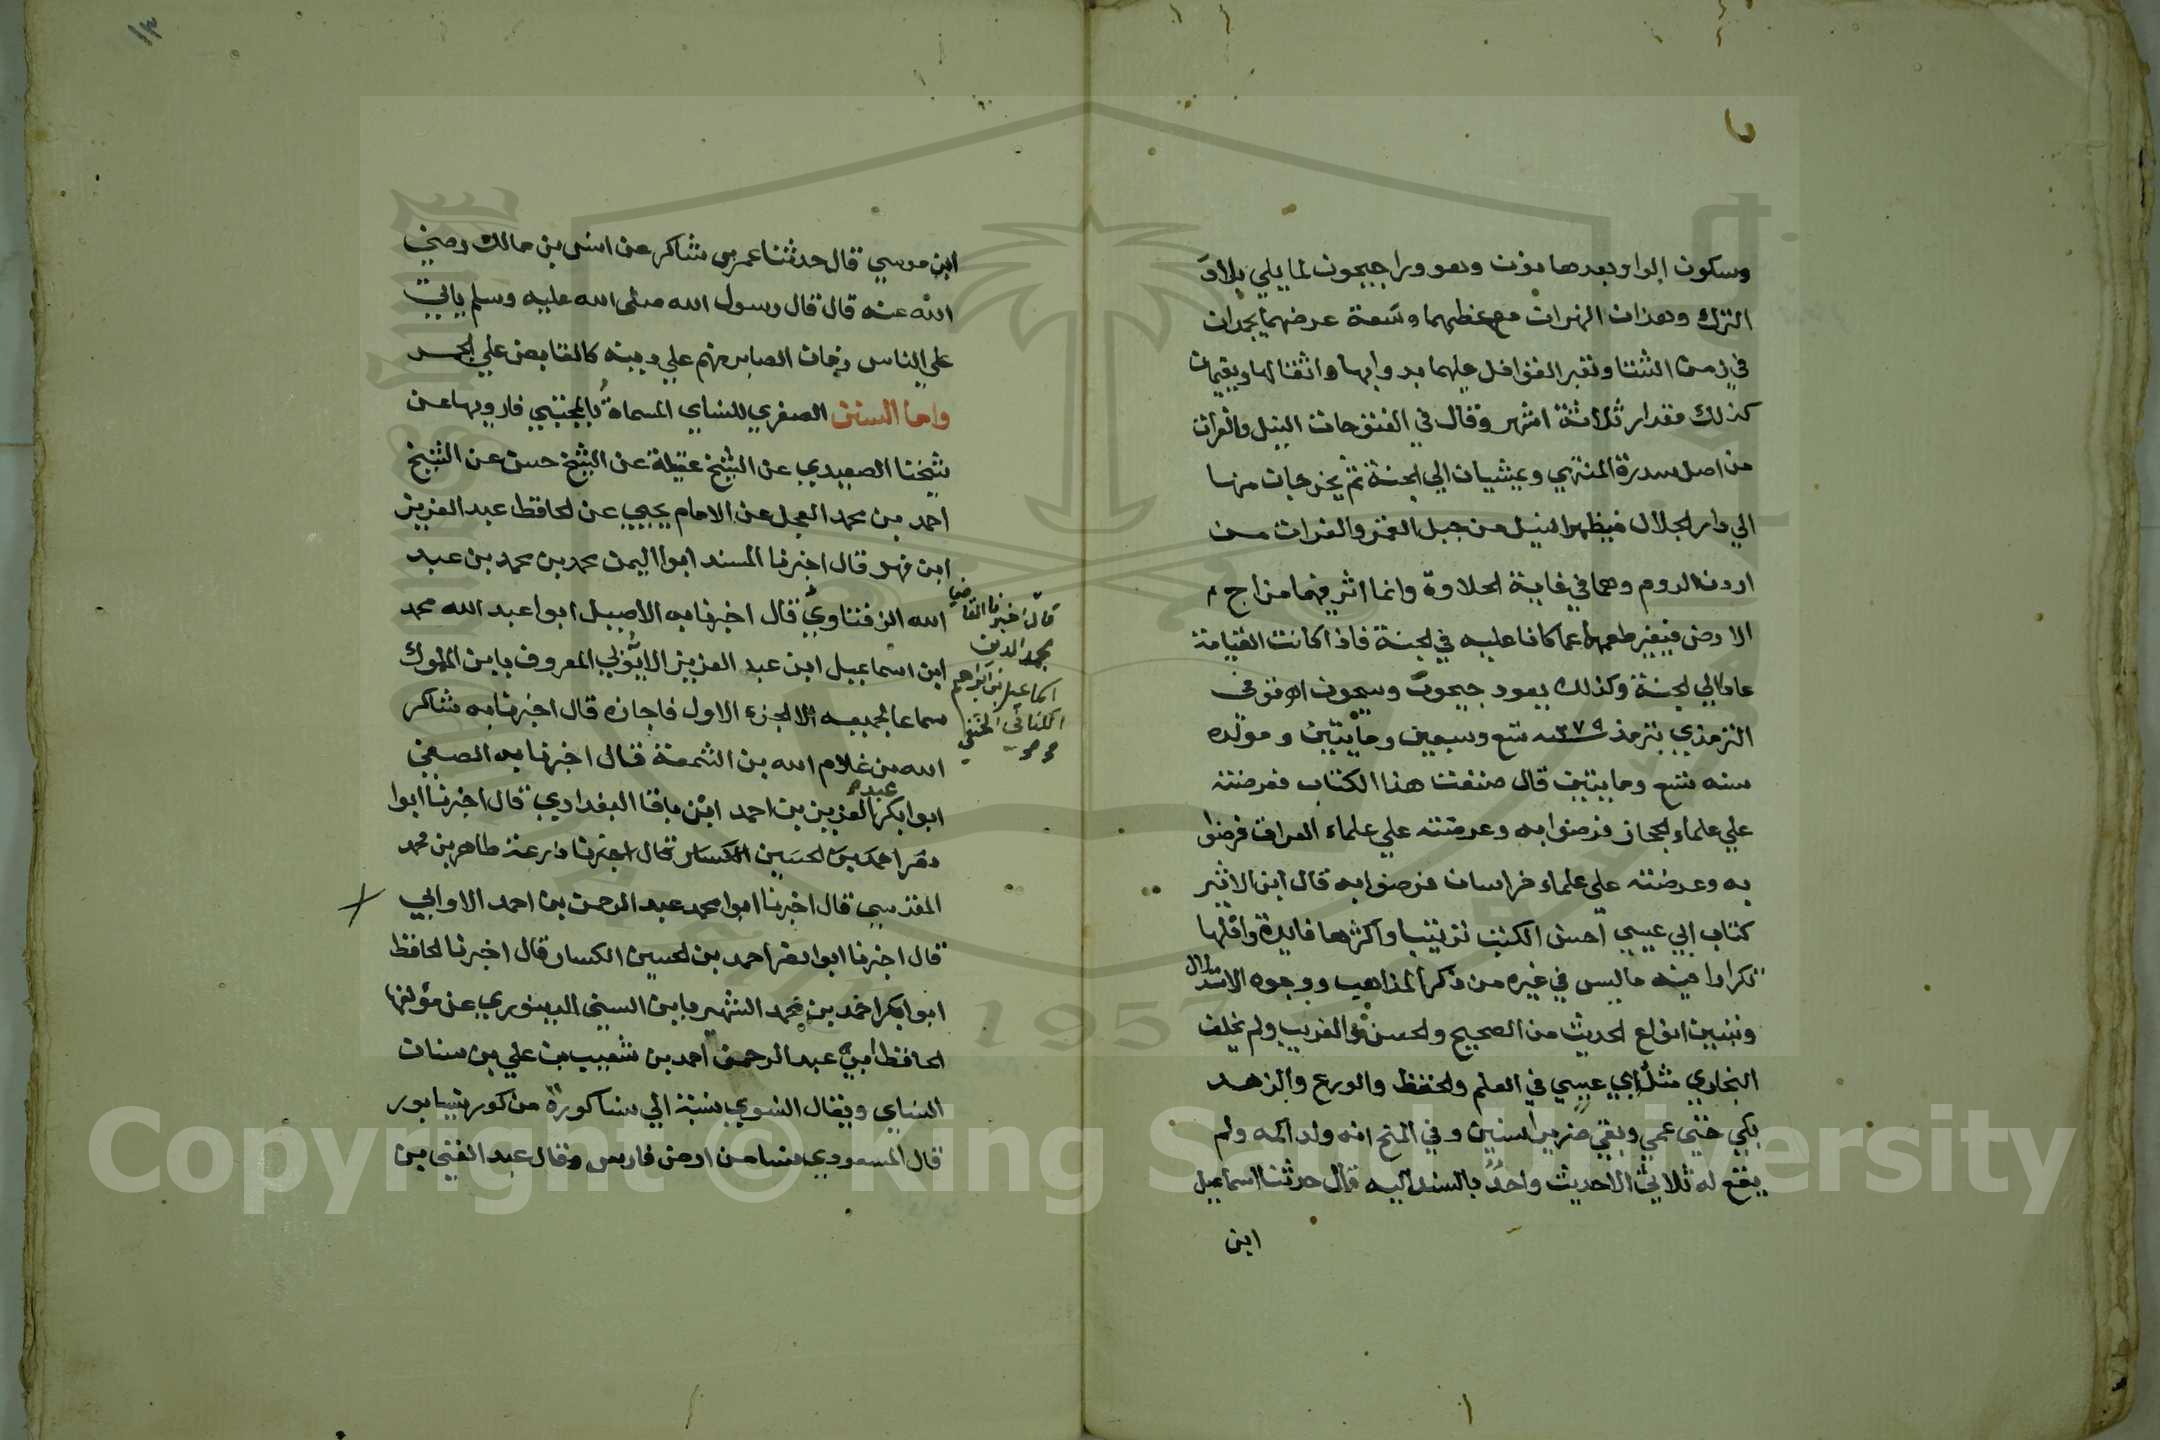 وسكون الرا وبعدها نون وهو ورا جيحون لما يلي بلاد
الترك وهذان النهران مع عظمهما وسعة عرضهما يجمدان
في زمن الشتا وتعبر القوافل عليهما بدوابها واثقالها ويقيمان
كذلك مقدار ثلاثة اشهر وقال في الفتوحات النيل والفرات
من اصل سدرة المنتهي ويمشيان الي الجنة ثم يخرجان منها
الي دار الجلال فيظهر النيل من جبل القمر والفرات من
اردن الروم وهما في غاية الحلاوة وانما اثر فيهما مزاج
الارض فيتغير طعمهما عما كانا عليه في الجنة فاذا كانت القيامة
عادا الي الجنة وكذلك يعود جيحون وسيحون اه توفي
الترمذي بترمذ سنة ٢٧٩ تسع وسبعين ومايتين ومولده
سنه تسع ومايتين قال صنفت هذا الكتاب فعرضته
علي علماء الحجاز فرضوا به وعرضته علي علماء العراق فرضوا
به وعرضته علي علماء خراسان فرضوا به قال ابن الاثير
كتاب ابي عيسي احسن الكتب ترتيبا واكثرها فايدة واقلها
تكرارا فيه ماليس في غيره من ذكر المذاهب ووجوه الاستدلال
وتبيين انواع الحديث من الصحيح والحسن والغريب ولم يخلف
البخاري مثل ابي عيسي في العلم والحفظ والورع والزهد
بكي حتي عمي وبقي ضريرا سنين وفي المنح انه ولد اكمه ولم
يقع له ثلاثي الاحديث واحد بالسند اليه قال حدثنا اسماعيل
ابن
١٣
ابن موسي قال حدثنا عمر بن شاكر عن انس بن مالك رضي
الله عنه قال قال رسول الله صلي الله عليه وسلم ياتي
علي الناس زمان الصابر منهم علي دينه كالقابض علي الجمر
واما السنن الصغري للنساي المسماة بالمجتبي فارويها عن
شيخنا الصعيدي عن الشيخ عقيلة عن الشيخ حسن عن الشيخ
احمد بن محمد العجل عن الامام يحيي عن الحافظ عبد العزيز
ابن فهد قال اخبرنا المسند ابوا اليمن محمد بن محمد بن عبد
الله الزفتاوي قال اخبرنا به الاصيل ابوا عبد الله محمد
ابن اسماعيل ابن عبد العزيز الايوبي المعروف بابن الملوك
سماعا لجميعه الا الجزء الاول فاجازه قال اخبرنا به شاكر
الله بن غلام الله بن الشمعة قال اخبرنا به الصفي
ابوا بكر عبد العزيز بن احمد ابن باقا البغدادي قال اخبرنا ابوا
احمد بن الحسين الكسار قال اخبرنا طاهر بن محمد
المقدسي قال اخبرنا ابوا محمد عبد الرحمن بن احمد
قال اخبرنا ابوا نصر احمد بن الحسين الكسار قال اخبرنا الحافظ
ابوا بكر احمد بن محمد الشهير بابن السني الدينوري عن مؤلفها
الحافظ ابي عبد الرحمن احمد بن شعيب بن علي بن سنان
النساي ويقال النسوي نسبة الي نسا كورة من كور نيسابور
قال المسعودي نسا من ارض فارس وقال عبد الغني بن
قال اخبرنا القاضي
مجد الدين
اسماعيل بن ابراهيم
الكناني الحنفي
Copyright © King Saud University
1957